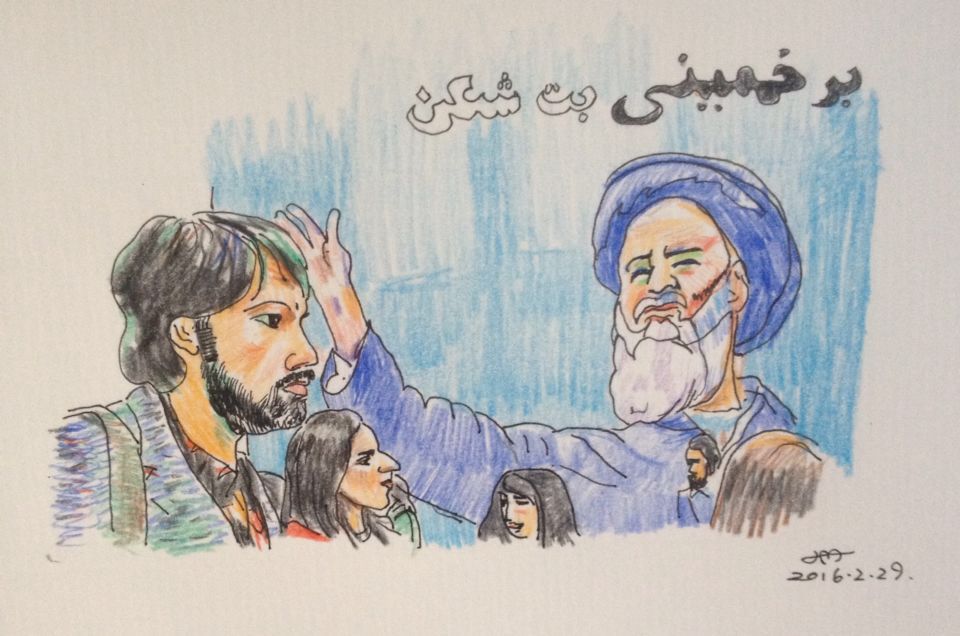 بر خمینی بت شکن
2016.2.29.